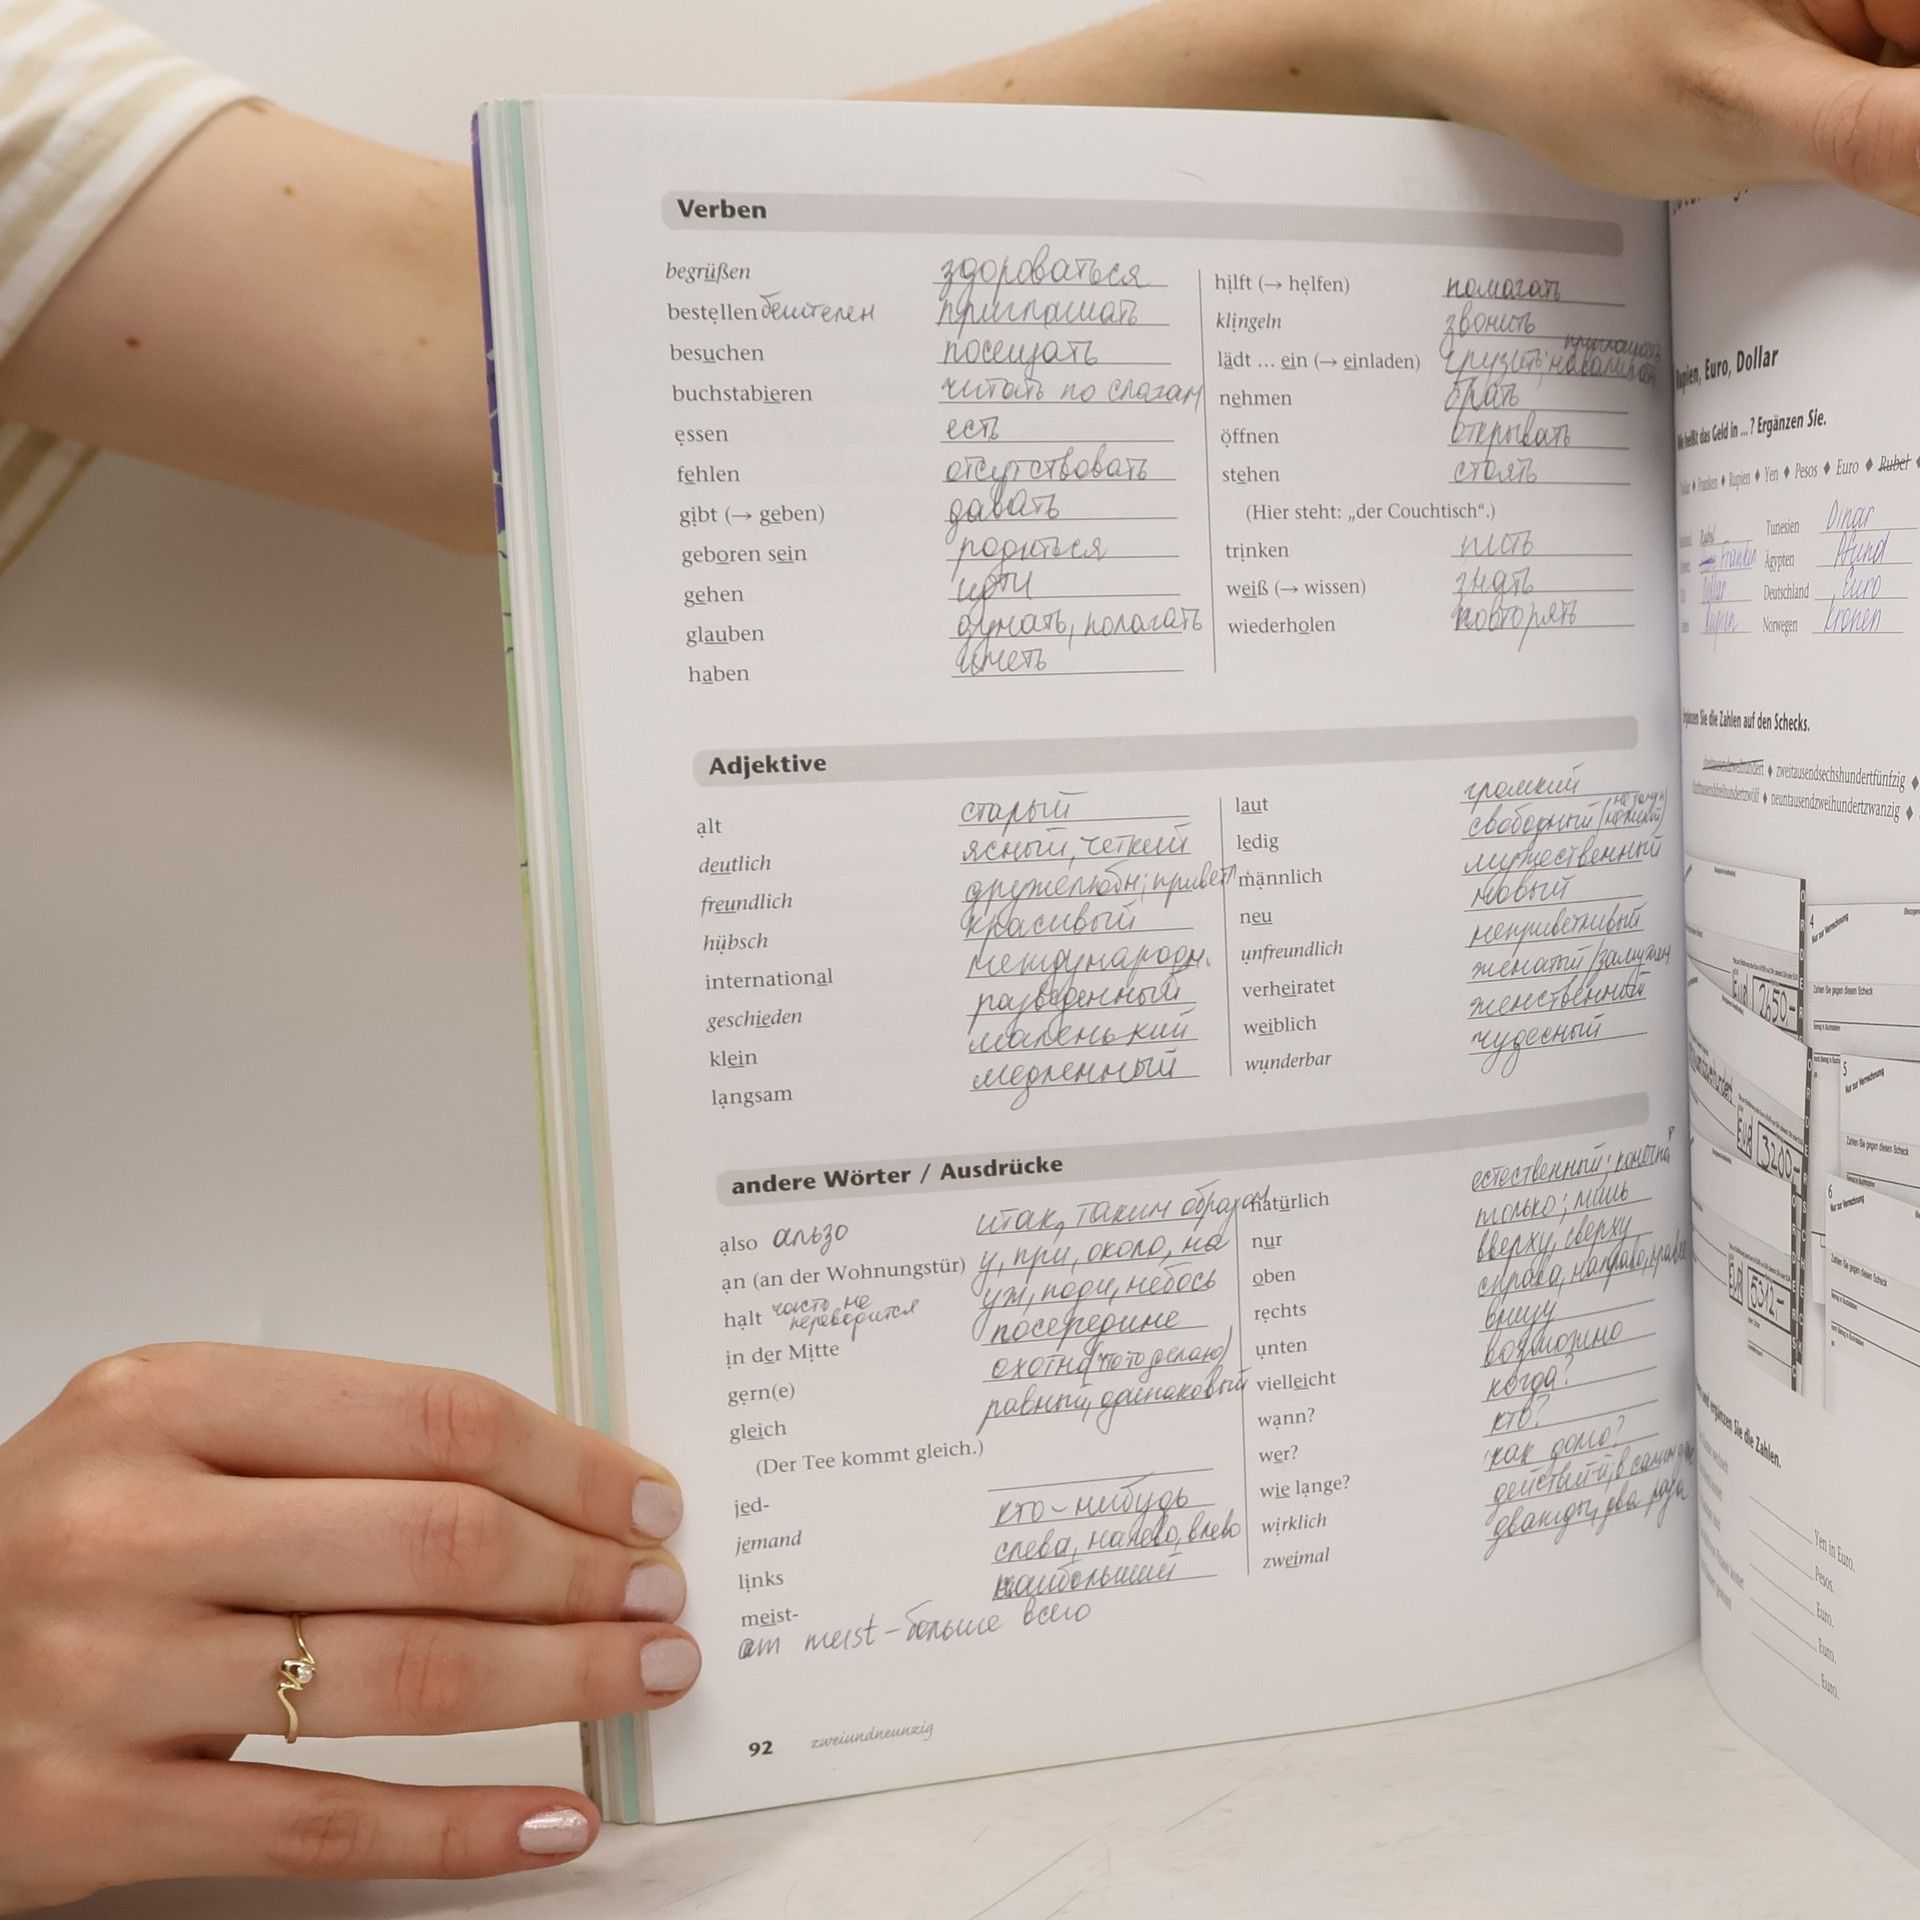 Verben
begrüßen здороваться
bestellen бештелен приглашать
besuchen посещать
buchstabieren читать по слогам
essen есть
fehlen отсутствовать
gibt (→ geben) давать
geboren sein родиться
gehen идти
glauben думать, полагать
haben иметь
hilft (→ helfen) помогать
klingeln звонить
приглашать
lädt ... ein (→ einladen) грузить;
nehmen брать
öffnen открывать
stehen стоять
(Hier steht: „der Couchtisch“.)
trinken пить
weiß (→ wissen) знать
wiederholen повторять
Adjektive
alt старый
deutlich ясный, четкий
freundlich дружелюбн; привет
hübsch красивый
international международн.
geschieden разведенный
klein маленький
langsam медленный
laut громкий
ledig свободный
männlich мужественный
neu новый
unfreundlich неприветливый
verheiratet женатый/замужем
weiblich женственный
wunderbar чудесный
andere Wörter / Ausdrücke
also альзо итак, таким образом
an (an der Wohnungstür) у, при, около, на
halt часто не переводится уж, поди, небось
in der Mitte посередине
gern(e) охотно (что то делаю)
gleich равный, одинаковый
(Der Tee kommt gleich.)
jed-
jemand кто-нибудь
links слева, налево, влево
meist- наибольший
am meist - больше всего
natürlich естественный; конечно
nur только; лишь
oben вверху, сверху
rechts справа, направо, вправо
unten внизу
vielleicht возможно
wann? когда?
wer? кто?
wie lange? как долго?
wirklich
zweimal дважды, два раза
92 zweiundneunzig
Euro, Dollar
das Geld in ...? Ergänzen Sie.
Franken ♦ Rupien ♦ Yen ♦ Pesos ♦ Euro ♦ Rubel
Tunesien Dinar
Franken Ägypten Pfund
Dollar Deutschland Euro
Rupien Norwegen Kronen
Sie die Zahlen auf den Schecks.
♦ zweitausendsechshundertfünfzig ♦
♦ neuntausendzweihundertzwanzig ♦
EUR 2650,-
4 Nur zur Verrechnung
Zahlen Sie gegen diesen Scheck
EUR 3200,-
5 Nur zur Verrechnung
Zahlen Sie gegen diesen Scheck
EUR 5312,-
6 Nur zur Verrechnung
Zahlen Sie gegen diesen Scheck
und ergänzen Sie die Zahlen.
Yen in Euro.
Pesos.
Euro.
Euro.
Euro.